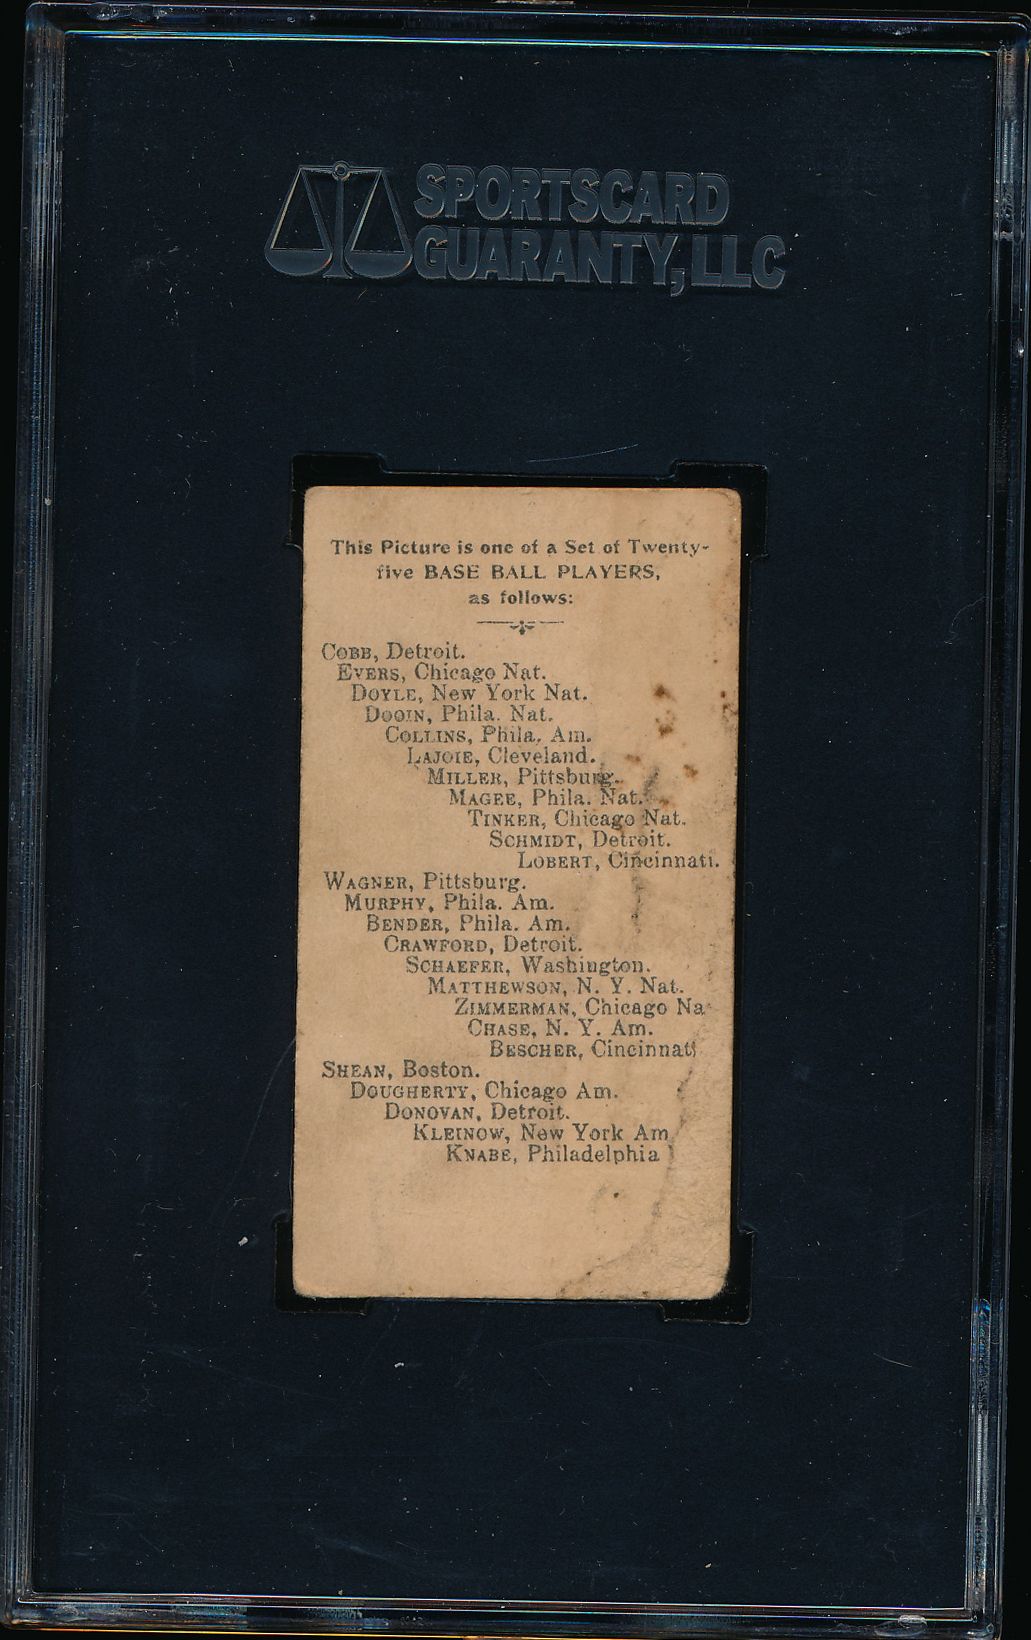 SPORTSCARD
GUARANTY, LLC
This Picture is one of a Set of Twenty-
five BASE BALL PLAYERS,
as follows:
COBB, Detroit.
EVERS, Chicago Nat.
DOYLE, New York Nat.
DOOIN, Phila. Nat.
COLLINS, Phila. Am.
LAJOIE, Cleveland.
MILLER, Pittsburg.
MAGEE, Phila. Nat.
TINKER, Chicago Nat.
SCHMIDT, Detroit.
LOBERT, Cincinnati.
WAGNER, Pittsburg.
MURPHY, Phila. Am.
BENDER, Phila. Am.
CRAWFORD, Detroit.
SCHAEFER, Washington.
MATTHEWSON, N. Y. Nat.
ZIMMERMAN, Chicago Na
CHASE, N. Y. Am.
BESCHER, Cincinnati
SHEAN, Boston.
DOUGHERTY, Chicago Am.
DONOVAN, Detroit.
KLEINOW, New York Am
KNABE, Philadelphia